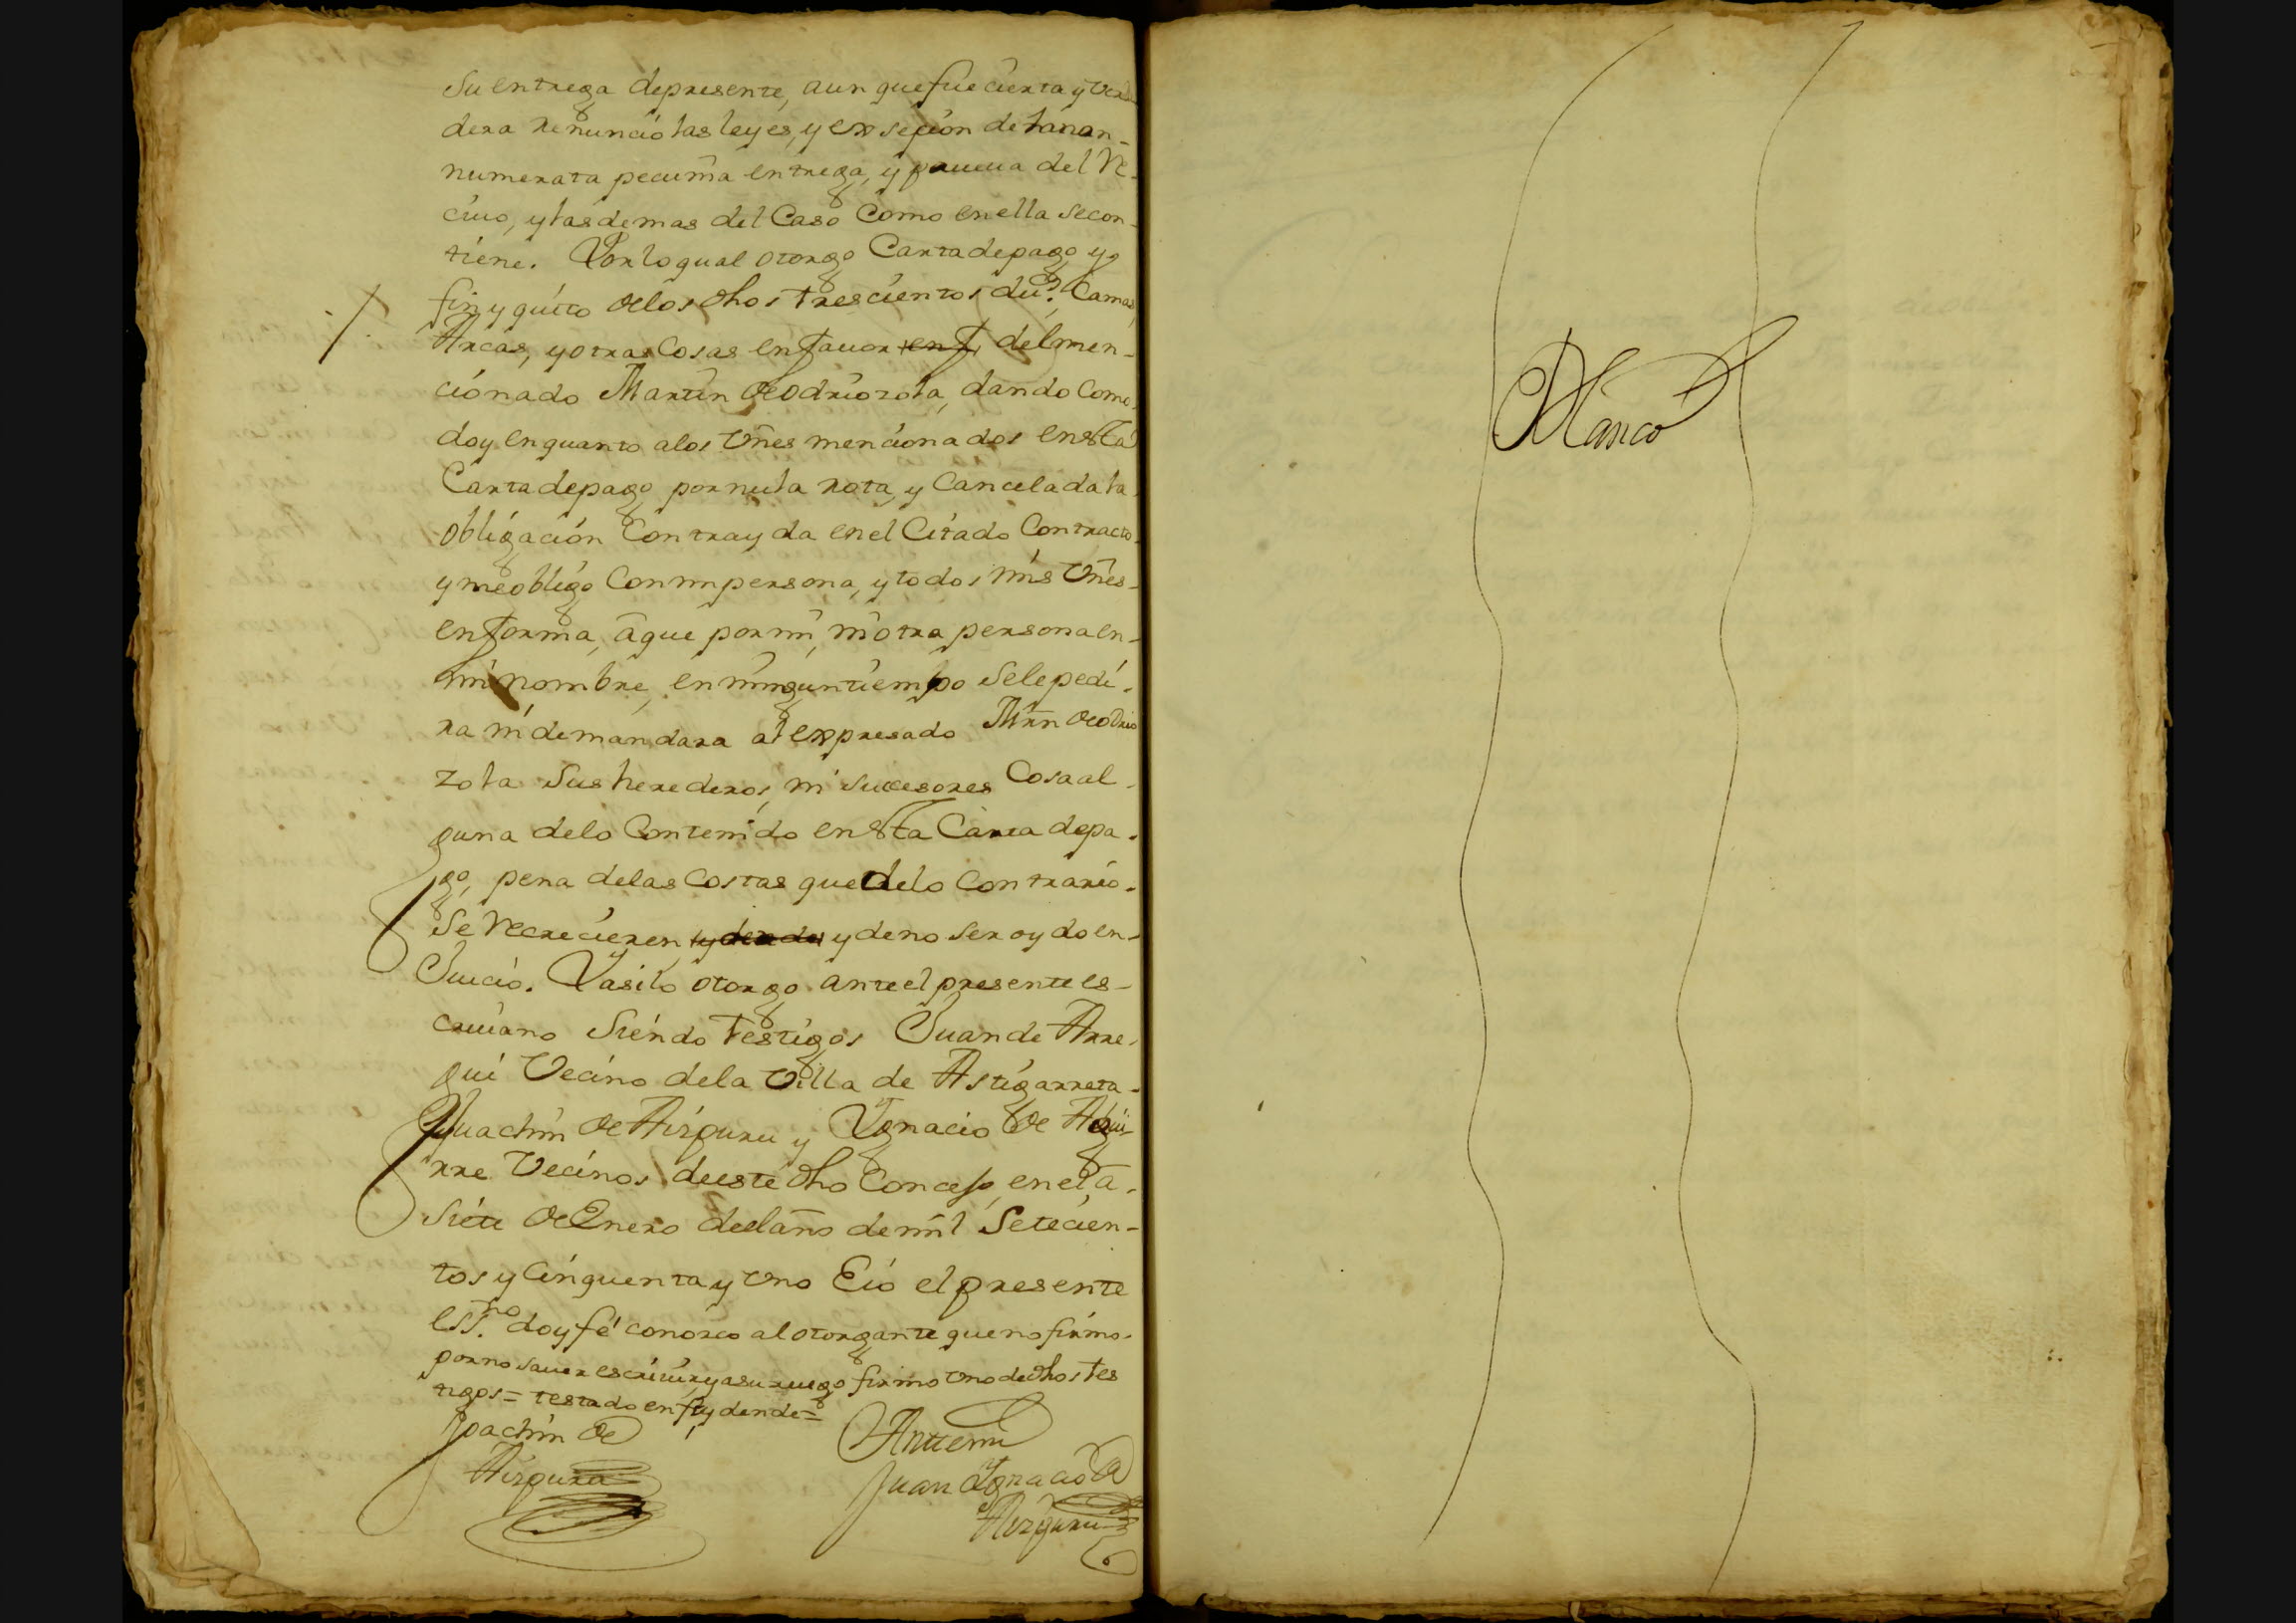 su entrega depresente, aun que fue cierta y verda
dera renunció las leyes, y exsepción de la non
numerata pecunia entrega, y prueua del Re
ciuo, y las demas del Caso Como en ella se con
tiene. Por lo qual otorgo Carta de pago y
fin y quito de los dhos trescientos du.s, Camas,
Arcas, y otras Cosas en fauor en f, del men
cionado Martin de Odriozola, dando Como
doy en quanto a los vnes mencionados en esta
Carta de pago por nula rota, y Cancelada la
obligación Contrayda en el Citado Contracto
y me obligo Con mi persona, y todos mis vnes
en forma, a que por mi, ni otra persona en
mi nombre, en ningun tiempo se le pedi
ra ni demandara al expresado Mrn de Odrio
zola sus herederos, ni sucesores Cosa al
guna de lo Contenido en esta Carta de pa
go, pena de las Costas que de lo Contrario
se Recrecieren, y dende y de no ser oydo en
Juicio. Y asi lo otorgo ante el presente es
criuano siendo testigos Juan de Arre
gui Vecino de la Villa de Astigarreta
Juachin de Aizpuru y Ygnacio de Agui
rre Vecinos de este dho Concejo, en el, a
siete de Enero de el año de mil Setecien
tos y Cinquenta y vno E io el presente
ess.no doy fé conozco al otorgante que no firmo
por no sauer escriuir y a su ruego firmo vno de dhos tes
tigos = testado en f, y dende =
Joachin de
Aizpuru
Ante mi
Juan Ygnacio de
Aizpuru
Blanco